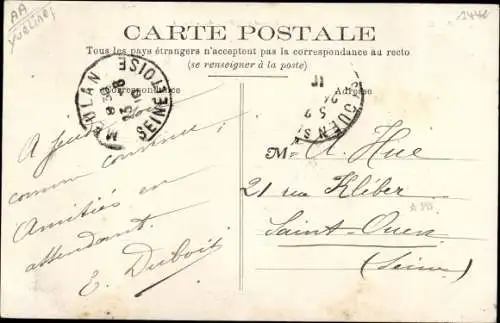 AA
YVELINES
CARTE POSTALE
Tous les pays étrangers n'acceptent pas la correspondance au recto
(se renseigner à la poste)
Correspondance
Adresse
MEULAN
SEINE ET OISE
A jeudi
comme convenu,
Amitiés en
attendant.
E. Dubois
M A Hue
21 rue Kléber
Saint-Ouen
(Seine)